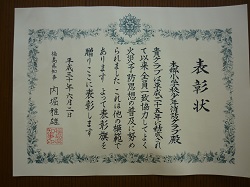 表彰状
本郷小学校少年消防クラブ殿
貴クラブは平成二十五年結成され
て以来全員一致協力してよく
火災予防思想の普及に努め
られましたこれは他の模範で
ありますよって表彰旗を
贈りここに表彰します
平成三十年六月二日
福島県知事 内堀雅雄